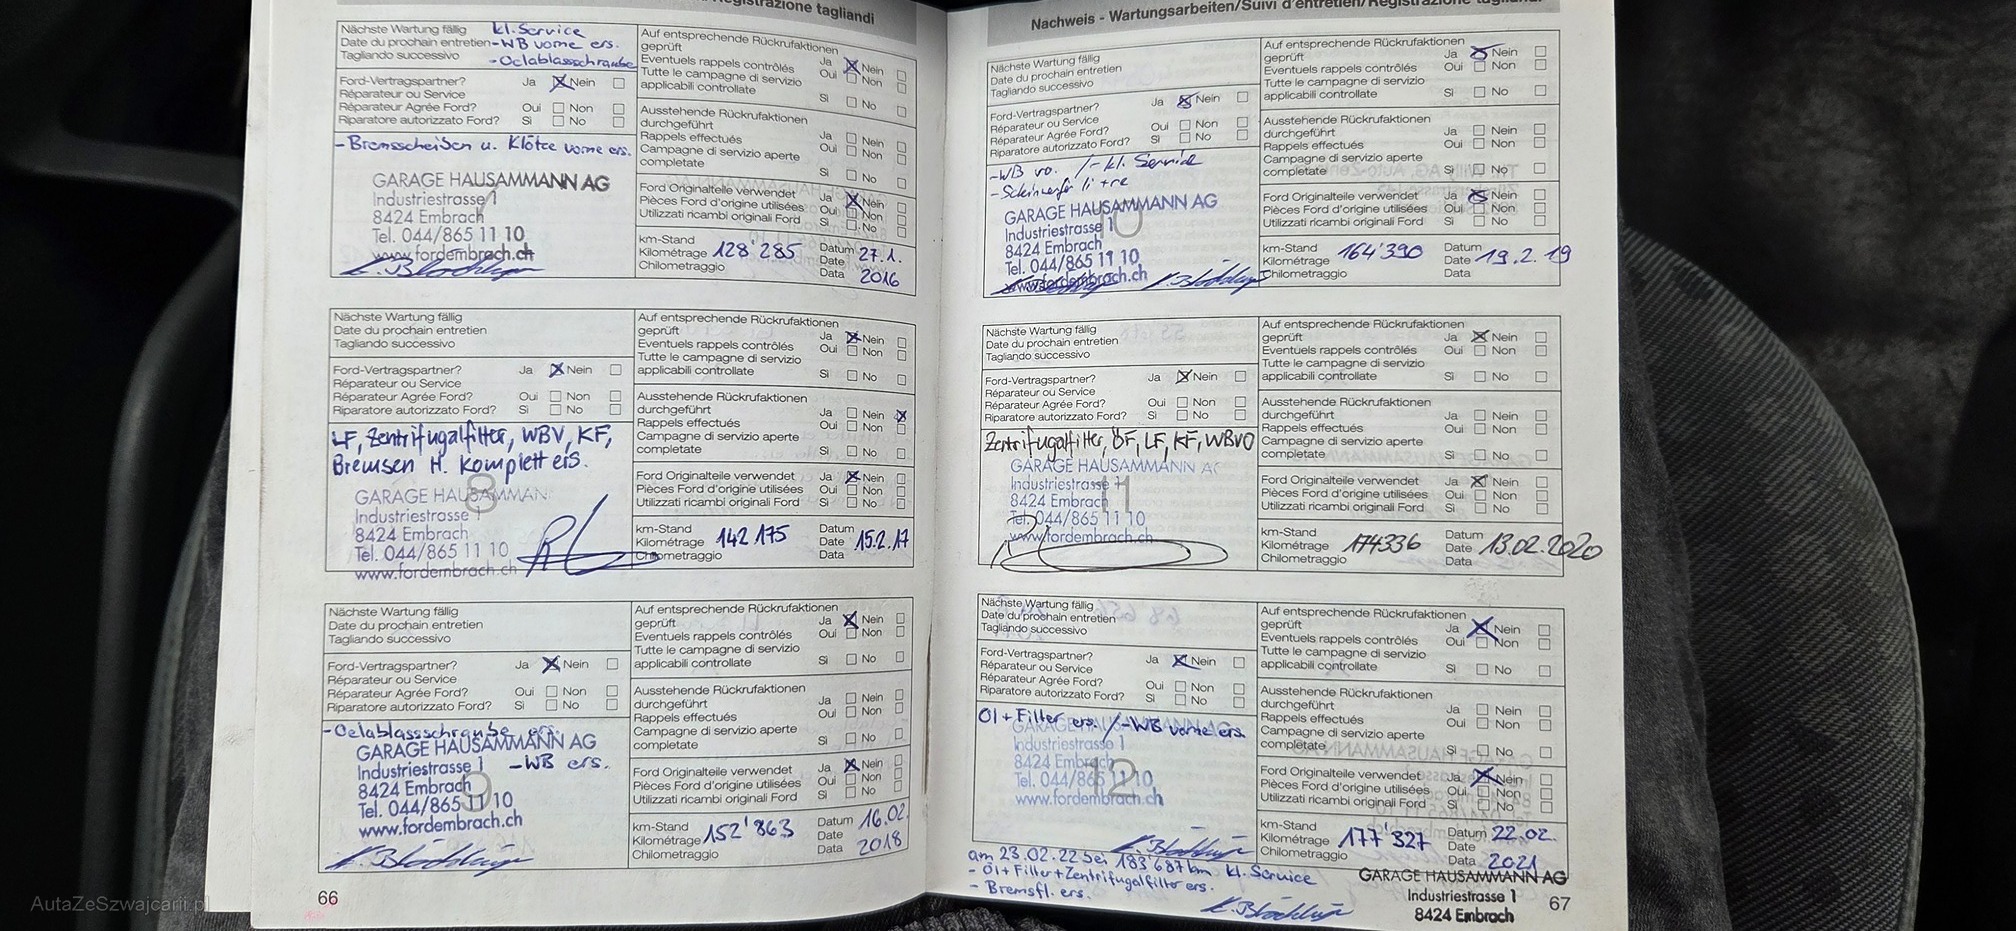 Registrazione tagliandi
Nächste Wartung fällig kl. Service
Date du prochain entretien -WB vorne ers.
Tagliando successivo -Oelablassschraube
Ford-Vertragspartner? Ja Nein
Réparateur ou Service
Réparateur Agrée Ford? Oui Non
Riparatore autorizzato Ford? Si No
-Bremsscheiben u. Klötze vorne ers.
GARAGE HAUSAMMANN AG
Industriestrasse 1
8424 Embrach
Tel. 044/865 11 10
www.fordembrach.ch
Auf entsprechende Rückrufaktionen
geprüft Ja Nein
Eventuels rappels contrôlés Oui Non
Tutte le campagne di servizio
applicabili controllate Si No
Ausstehende Rückrufaktionen
durchgeführt Ja Nein
Rappels effectués Oui Non
Campagne di servizio aperte
completate Si No
Ford Originalteile verwendet Ja Nein
Pièces Ford d'origine utilisées Oui Non
Utilizzati ricambi originali Ford Si No
km-Stand Datum
Kilométrage 128'285 Date 27.1.
Chilometraggio Data 2016
Nächste Wartung fällig
Date du prochain entretien
Tagliando successivo
Ford-Vertragspartner? Ja Nein
Réparateur ou Service
Réparateur Agrée Ford? Oui Non
Riparatore autorizzato Ford? Si No
LF, Zentrifugalfilter, WBV, KF,
Bremsen H. komplett ers.
8
GARAGE HAUSAMMAN
Industriestrasse 1
8424 Embrach
Tel. 044/865 11 10
www.fordembrach.ch
Auf entsprechende Rückrufaktionen
geprüft Ja Nein
Eventuels rappels contrôlés Oui Non
Tutte le campagne di servizio
applicabili controllate Si No
Ausstehende Rückrufaktionen
durchgeführt Ja Nein
Rappels effectués Oui Non
Campagne di servizio aperte
completate Si No
Ford Originalteile verwendet Ja Nein
Pièces Ford d'origine utilisées Oui Non
Utilizzati ricambi originali Ford Si No
km-Stand Datum
Kilométrage 142 175 Date 15.2.17
Chilometraggio Data
Nächste Wartung fällig
Date du prochain entretien
Tagliando successivo
Ford-Vertragspartner? Ja Nein
Réparateur ou Service
Réparateur Agrée Ford? Oui Non
Riparatore autorizzato Ford? Si No
-Oelablassschraube ers.
GARAGE HAUSAMMANN AG
Industriestrasse 1 -WB ers.
8424 Embrach
9
Tel. 044/865 11 10
www.fordembrach.ch
Auf entsprechende Rückrufaktionen
geprüft Ja Nein
Eventuels rappels contrôlés Oui Non
Tutte le campagne di servizio
applicabili controllate Si No
Ausstehende Rückrufaktionen
durchgeführt Ja Nein
Rappels effectués Oui Non
Campagne di servizio aperte
completate Si No
Ford Originalteile verwendet Ja Nein
Pièces Ford d'origine utilisées Oui Non
Utilizzati ricambi originali Ford Si No
km-Stand Datum 16.02.
Kilométrage 152'863 Date
Chilometraggio Data 2018
66
Nachweis - Wartungsarbeiten/Suivi d'entretien/Registrazione tagliandi
Nächste Wartung fällig
Date du prochain entretien
Tagliando successivo
Ford-Vertragspartner? Ja Nein
Réparateur ou Service
Réparateur Agrée Ford? Oui Non
Riparatore autorizzato Ford? Si No
-WB vo. /-kl. Service
-Scheinwerfer li + re
10
GARAGE HAUSAMMANN AG
Industriestrasse 1
8424 Embrach
Tel. 044/865 11 10
www.fordembrach.ch
Auf entsprechende Rückrufaktionen
geprüft Ja Nein
Eventuels rappels contrôlés Oui Non
Tutte le campagne di servizio
applicabili controllate Si No
Ausstehende Rückrufaktionen
durchgeführt Ja Nein
Rappels effectués Oui Non
Campagne di servizio aperte
completate Si No
Ford Originalteile verwendet Ja Nein
Pièces Ford d'origine utilisées Oui Non
Utilizzati ricambi originali Ford Si No
km-Stand Datum
Kilométrage 164'390 Date 19.2.19
Chilometraggio Data
Nächste Wartung fällig
Date du prochain entretien
Tagliando successivo
Ford-Vertragspartner? Ja Nein
Réparateur ou Service
Réparateur Agrée Ford? Oui Non
Riparatore autorizzato Ford? Si No
Zentrifugalfilter, ÖF, LF, KF, WBVO
11
GARAGE HAUSAMMANN AG
Industriestrasse 1
8424 Embrach
Tel. 044/865 11 10
www.fordembrach.ch
Auf entsprechende Rückrufaktionen
geprüft Ja Nein
Eventuels rappels contrôlés Oui Non
Tutte le campagne di servizio
applicabili controllate Si No
Ausstehende Rückrufaktionen
durchgeführt Ja Nein
Rappels effectués Oui Non
Campagne di servizio aperte
completate Si No
Ford Originalteile verwendet Ja Nein
Pièces Ford d'origine utilisées Oui Non
Utilizzati ricambi originali Ford Si No
km-Stand Datum
Kilométrage 174336 Date 13.02.2020
Chilometraggio Data
Nächste Wartung fällig
Date du prochain entretien
Tagliando successivo
Ford-Vertragspartner? Ja Nein
Réparateur ou Service
Réparateur Agrée Ford? Oui Non
Riparatore autorizzato Ford? Si No
Öl + Filter ers. /-WB vorne ers.
GARAGE HAUSAMMANN AG
Industriestrasse 1
8424 Embrach
12
Tel. 044/865 11 10
www.fordembrach.ch
Auf entsprechende Rückrufaktionen
geprüft Ja Nein
Eventuels rappels contrôlés Oui Non
Tutte le campagne di servizio
applicabili controllate Si No
Ausstehende Rückrufaktionen
durchgeführt Ja Nein
Rappels effectués Oui Non
Campagne di servizio aperte
completate Si No
Ford Originalteile verwendet Ja Nein
Pièces Ford d'origine utilisées Oui Non
Utilizzati ricambi originali Ford Si No
km-Stand Datum 22.02.
Kilométrage 177'327 Date
Chilometraggio Data 2021
am 23.02.22 bei 183'687km kl. Service
- Öl + Filter + Zentrifugalfilter ers.
- Bremsfl. ers.
GARAGE HAUSAMMANN AG
Industriestrasse 1
8424 Embrach
67
AutaZeSzwajcarii.pl